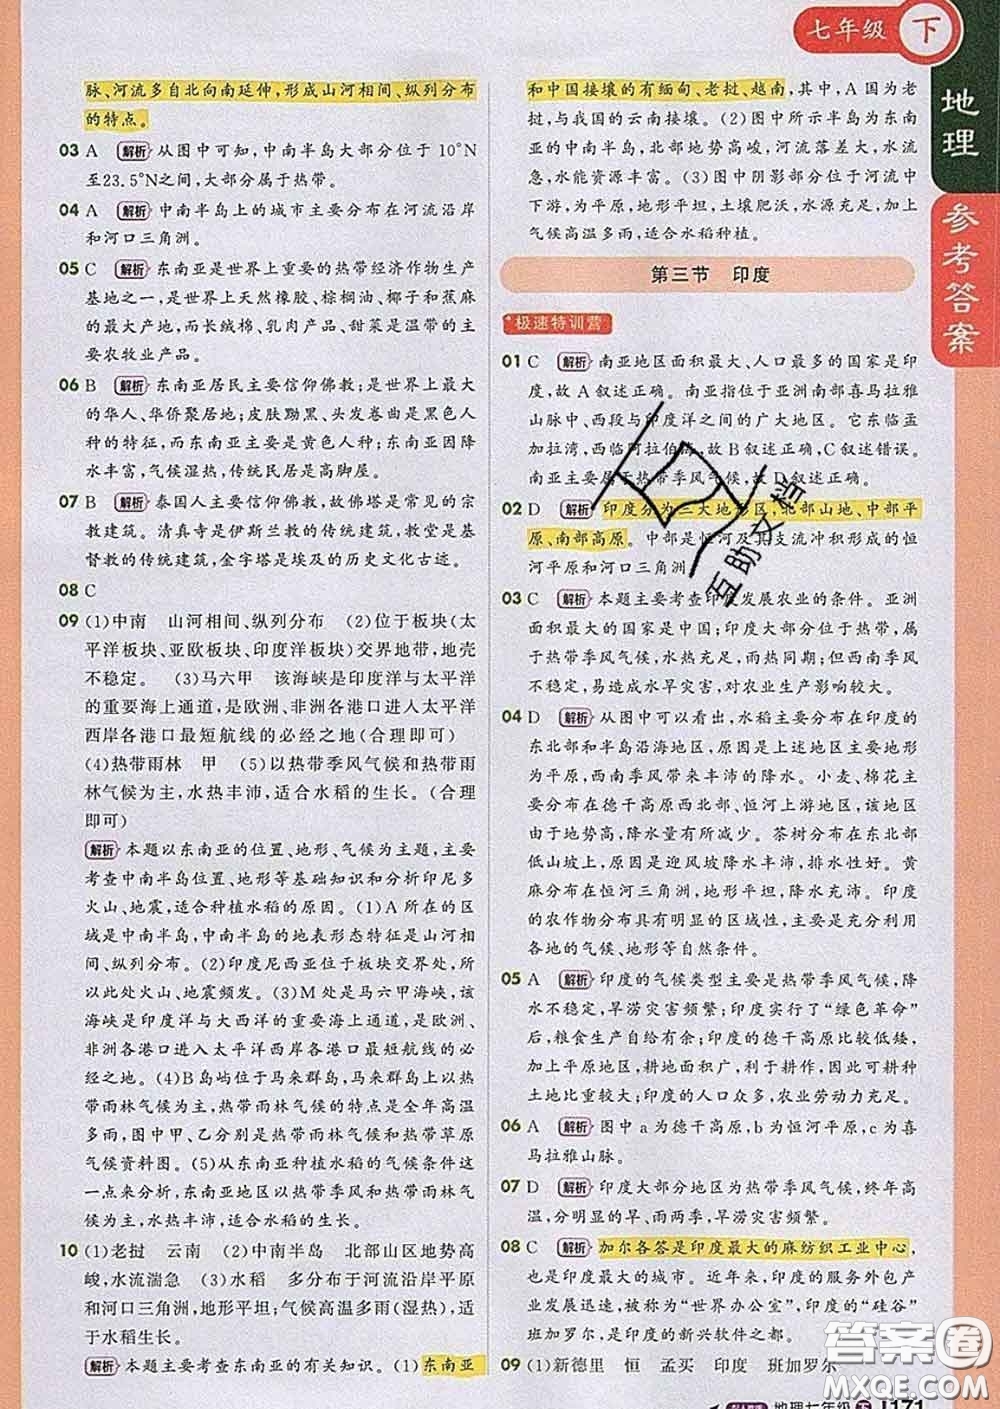 七年级 下
地理
参考答案
脉、河流多自北向南延伸,形成山河相间、纵列分布
的特点。
03 A 解析 从图中可知,中南半岛大部分位于10°N
至23.5°N之间,大部分属于热带。
04 A 解析 中南半岛上的城市主要分布在河流沿岸
和河口三角洲。
05 C 解析 东南亚是世界上重要的热带经济作物生产
基地之一,是世界上天然橡胶、棕榈油、椰子和蕉麻
的最大产地,而长绒棉、乳肉产品、甜菜是温带的主
要农牧业产品。
06 B 解析 东南亚居民主要信仰佛教;是世界上最大
的华人、华侨聚居地;皮肤黝黑、头发卷曲是黑色人
种的特征,而东南亚主要是黄色人种;东南亚因降
水丰富,气候湿热,传统民居是高脚屋。
07 B 解析 泰国人主要信仰佛教,故佛塔是常见的宗
教建筑。清真寺是伊斯兰教的传统建筑,教堂是基督
教的传统建筑,金字塔是埃及的历史文化古迹。
08 C
09 (1)中南 山河相间、纵列分布 (2)位于板块(太
平洋板块、亚欧板块、印度洋板块)交界地带,地壳
不稳定。 (3)马六甲 该海峡是印度洋与太平洋
的重要海上通道,是欧洲、非洲各港口进入太平洋
西岸各港口最短航线的必经之地(合理即可)
(4)热带雨林 甲 (5)以热带季风气候和热带雨
林气候为主,水热丰沛,适合水稻的生长。(合理
即可)
解析 本题以东南亚的位置、地形、气候为主题,主要
考查中南半岛位置、地形等基础知识和分析印尼多
火山、地震,适合种植水稻的原因。(1)A所在的区
域是中南半岛,中南半岛的地表形态特征是山河相
间、纵列分布。(2)印度尼西亚位于板块交界处,所
以此处火山、地震频发。(3)M处是马六甲海峡,该
海峡是印度洋与大西洋的重要海上通道,是欧洲、
非洲各港口进入太平洋西岸各港口最短航线的必
经之地。(4)B岛屿位于马来群岛,马来群岛以热
带雨林气候为主,热带雨林气候的特点是全年高温
多雨,图中甲、乙分别是热带雨林气候和热带草原
气候资料图。(5)从东南亚种植水稻的气候条件这
一点来分析,东南亚地区以热带季风和热带雨林气
候为主,水热丰沛,适合水稻的生长。
10 (1)老挝 云南 (2)中南半岛 北部山区地势高
峻,水流湍急 (3)水稻 多分布于河流沿岸平原
和河口三角洲,地形平坦;气候高温多雨(湿热),适
于水稻生长。
解析 本题主要考查东南亚的有关知识。(1)东南亚
和中国接壤的有缅甸、老挝、越南,其中,A国为老
挝,与我国的云南接壤。(2)图中所示半岛为东南
亚的中南半岛,北部地势高峻,河流落差大,水流湍
急,水能资源丰富。(3)图中阴影部分位于河流中
下游,为平原,地形平坦,土壤肥沃,水源充足,加上
气候高温多雨,适合水稻种植。
第三节 印度
极速特训营
01 C 解析 南亚地区面积最大、人口最多的国家是印
度,故A叙述正确。南亚指位于亚洲南部喜马拉雅
山脉中、西段与印度洋之间的广大地区。它东临孟
加拉湾,西临阿拉伯海,故B叙述正确,C叙述错误。
南亚主要属于热带季风气候,故D叙述正确。
02 D 解析 印度分为三大地形区,北部山地、中部平
原、南部高原。中部是恒河及其支流冲积形成的恒
河平原和河口三角洲
03 C 解析 本题主要考查印度发展农业的条件。亚洲
面积最大的国家是中国;印度大部分位于热带,属
于热带季风气候,水热充足,雨热同期;但西南季风
不稳定,易造成水旱灾害,对农业生产影响较大。
04 D 解析 从图中可以看出,水稻主要分布在印度的
东北部和半岛沿海地区,原因是上述地区主要地形
为平原,西南季风带来丰沛的降水。小麦、棉花主
要分布在德干高原西北部、恒河上游地区,该地区
由于地势高,降水量有所减少。茶树分布在东北部
低山坡上,原因是迎风坡降水丰沛,排水性好。黄
麻分布在恒河三角洲,地形平坦,降水丰沛。印度
的农作物分布具有明显的区域性,主要是充分利用
各地的气候、地形等自然条件。
05 A 解析 印度的气候类型主要是热带季风气候,降
水不稳定,旱涝灾害频繁;印度实行了“绿色革命”
后,粮食生产自给有余;印度的德干高原地势低矮,
起伏和缓,耕地面积广大,利于耕作,因此印度平原
土地比重较大;印度的人口众多,农业劳动力充足。
06 A 解析 图中a为德干高原,b为恒河平原,c为喜
马拉雅山脉。
07 D 解析 印度大部分地区为热带季风气候,终年高
温,分明显的旱、雨两季,旱涝灾害频繁。
08 C 解析 加尔各答是印度最大的麻纺织工业中心,
也是印度最大的城市。近年来,印度的服务外包产
业发展迅速,被称为“世界办公室”,印度的“硅谷”
班加罗尔,是印度的新兴软件之都。
09 (1)新德里 恒 孟买 印度 班加罗尔
互助文档
答案卷
MXQE.COM
地理七年级 下 171